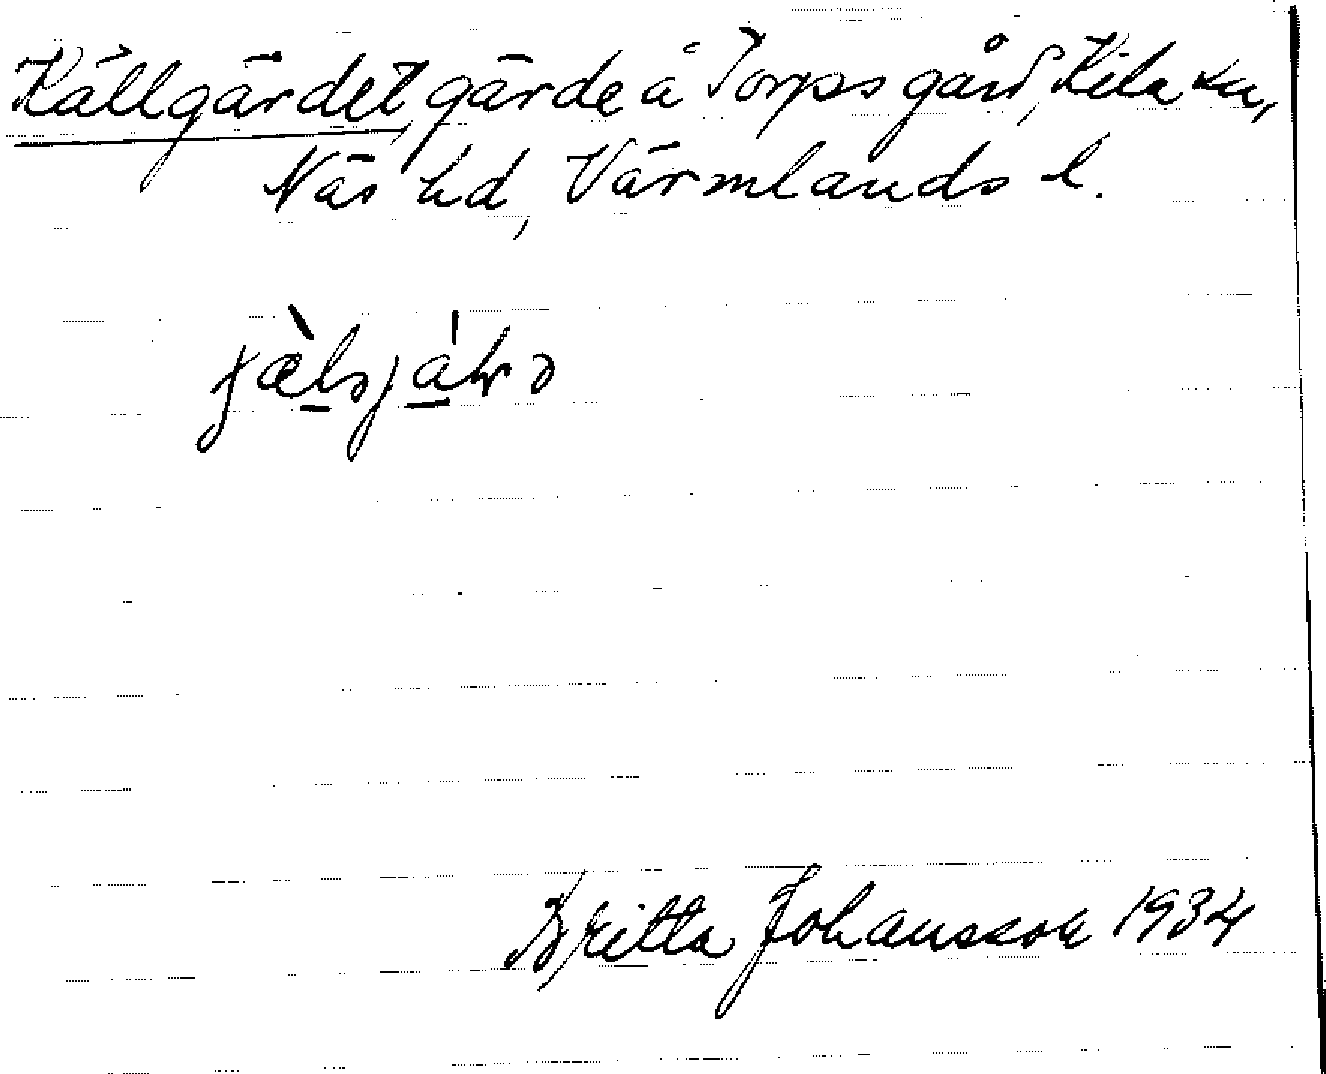 Källgärdet, gärde å Torps gård, Kila sn,
Näs hd, Värmlands l.
Britta Johansson 1934